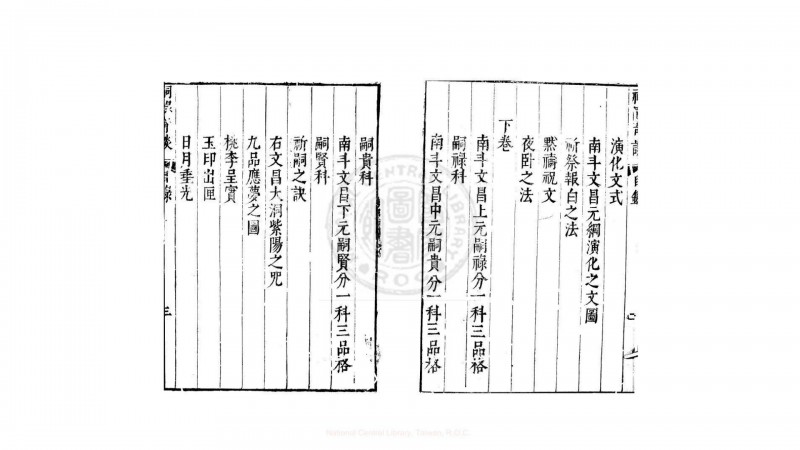 演化文式
南斗文昌元綱演化之文圖
祈祭報白之法
默禱祝文
夜臥之法
下卷
南斗文昌上元嗣祿分一科三品格
嗣祿科
南斗文昌中元嗣貴分一科三品格
嗣貴科
南斗文昌下元嗣賢分一科三品格
嗣賢科
祈嗣之訣
右文昌大洞紫陽之咒
九品應夢之圖
桃李呈實
玉印出匣
日月垂光
目錄
三
National Central Library, Taiwan, R.O.C.